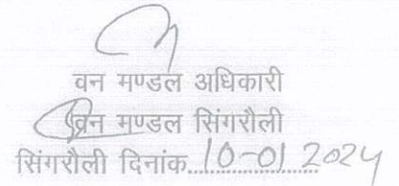 वन मण्डल अधिकारी
वन मण्डल सिंगरौली
सिंगरौली दिनांक.10-01 2024